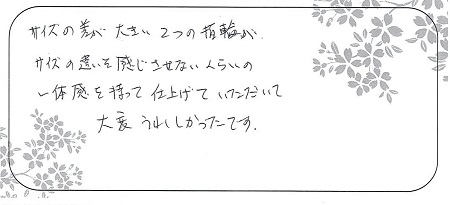 サイズの差が大きい2つの指輪が
サイズの違いを感じさせないくらいの
一体感を持って仕上げていただいて
大変うれしかったです。